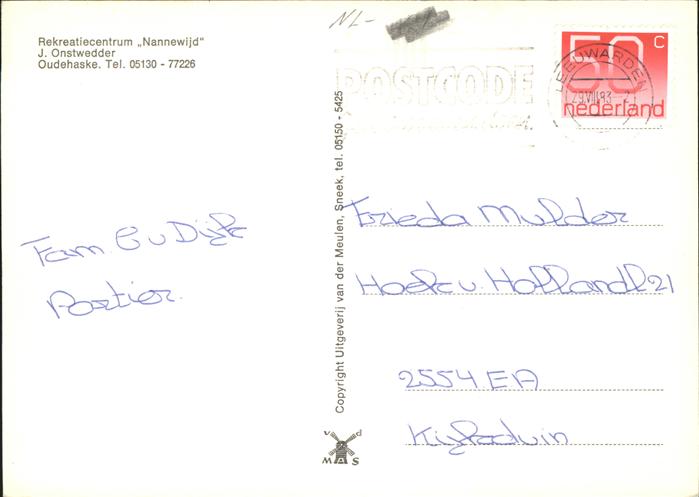 Rekreatiecentrum „Nannewijd"
J. Onstwedder
Oudehaske. Tel. 05130 - 77226
NL-
POSTCODE
LEEUWARDEN
29.VIII.83
50 C
nederland
Fam. G v Dijk
Portier.
Copyright Uitgeverij van der Meulen, Sneek, tel. 05150 - 5425
v d
MAS
Frieda Mulder
Hoek v. Holland 21
2554 EA
Kijkduin